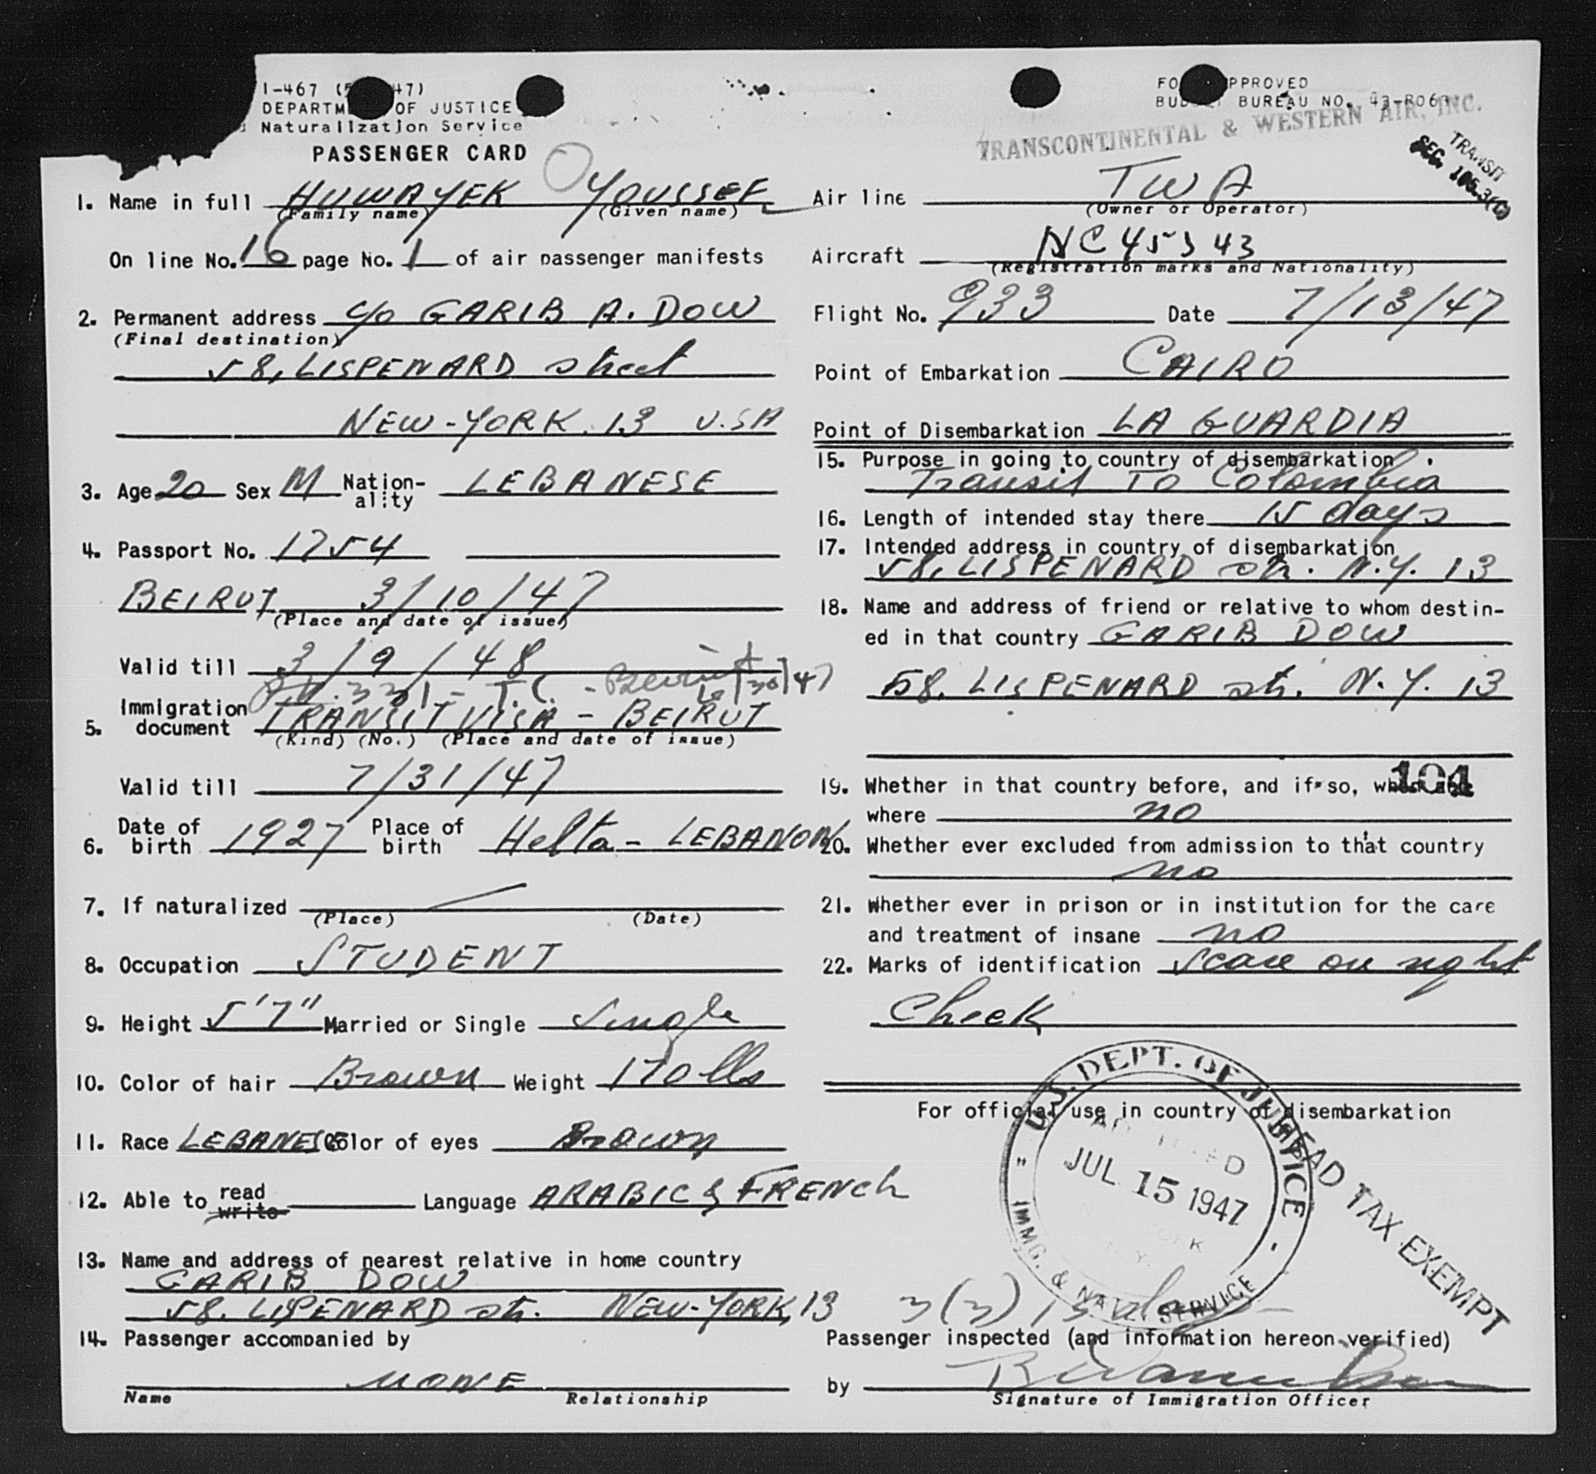 I-467 (5 47)
DEPARTM OF JUSTICE
Naturalization Service
PASSENGER CARD
FO PPROVED
BUD BUREAU NO. 43-R060
TRANSCONTINENTAL & WESTERN AIR, INC.
TRANSIT
SEC. 105.3(C)
1. Name in full HUWAYEK YOUSSEF
(Family name) (Given name)
On line No. 16 page No. 1 of air passenger manifests
2. Permanent address c/o GARIB A. DOW
(Final destination)
58, LISPENARD street
NEW-YORK. 13 U.S A
3. Age 20 Sex M Nation-ality LEBANESE
4. Passport No. 1754
BEIRUT 3/10/47
(Place and date of issue)
Valid till 3/9/48
331 - T.C. - Beirut 6/30/47
5. Immigration document TRANSIT VISA - BEIRUT
(Kind) (No.) (Place and date of issue)
Valid till 7/31/47
6. Date of birth 1927 Place of birth Helta - LEBANON
7. If naturalized
(Place) (Date)
8. Occupation STUDENT
9. Height 5'7" Married or Single Single
10. Color of hair Brown Weight 170 lbs
11. Race LEBANESE Color of eyes Brown
12. Able to read write Language ARABIC & FRENCH
13. Name and address of nearest relative in home country
GARIB DOW
58. LISPENARD str. NEW-YORK, 13
14. Passenger accompanied by
NONE
Name Relationship
Air line TWA
(Owner or Operator)
Aircraft NC 45343
(Registration marks and Nationality)
Flight No. 933 Date 7/13/47
Point of Embarkation CAIRO
Point of Disembarkation LA GUARDIA
15. Purpose in going to country of disembarkation
Transit To Colombia
16. Length of intended stay there 15 days
17. Intended address in country of disembarkation
58, LISPENARD str. N.Y. 13
18. Name and address of friend or relative to whom destin-
ed in that country GARIB DOW
58. LISPENARD str. N.Y. 13
104
19. Whether in that country before, and if so, when and
where no
20. Whether ever excluded from admission to that country
no
21. Whether ever in prison or in institution for the care
and treatment of insane no
22. Marks of identification scare on right
Cheek
For official use in country of disembarkation
U.S. DEPT. OF JUSTICE
ADMITTED
JUL 15 1947
IMMG. & NATZ. SERVICE
HEAD TAX EXEMPT
3(3) 15 days
Passenger inspected (and information hereon verified)
by
Signature of Immigration Officer